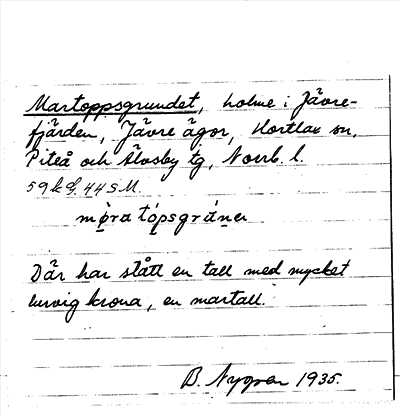 Martoppsgrundet, holme i Jävre-
fjärden, Jävre ägor, Hortlax sn,
Piteå och Älvsby tg, Norrb. l.
59 k S. 44 S M.
mạ̊ra tópsgrǻnẹɹ
Där har stått en tall med mycket
lurvig krona, en martall.
B. Nygren 1935.